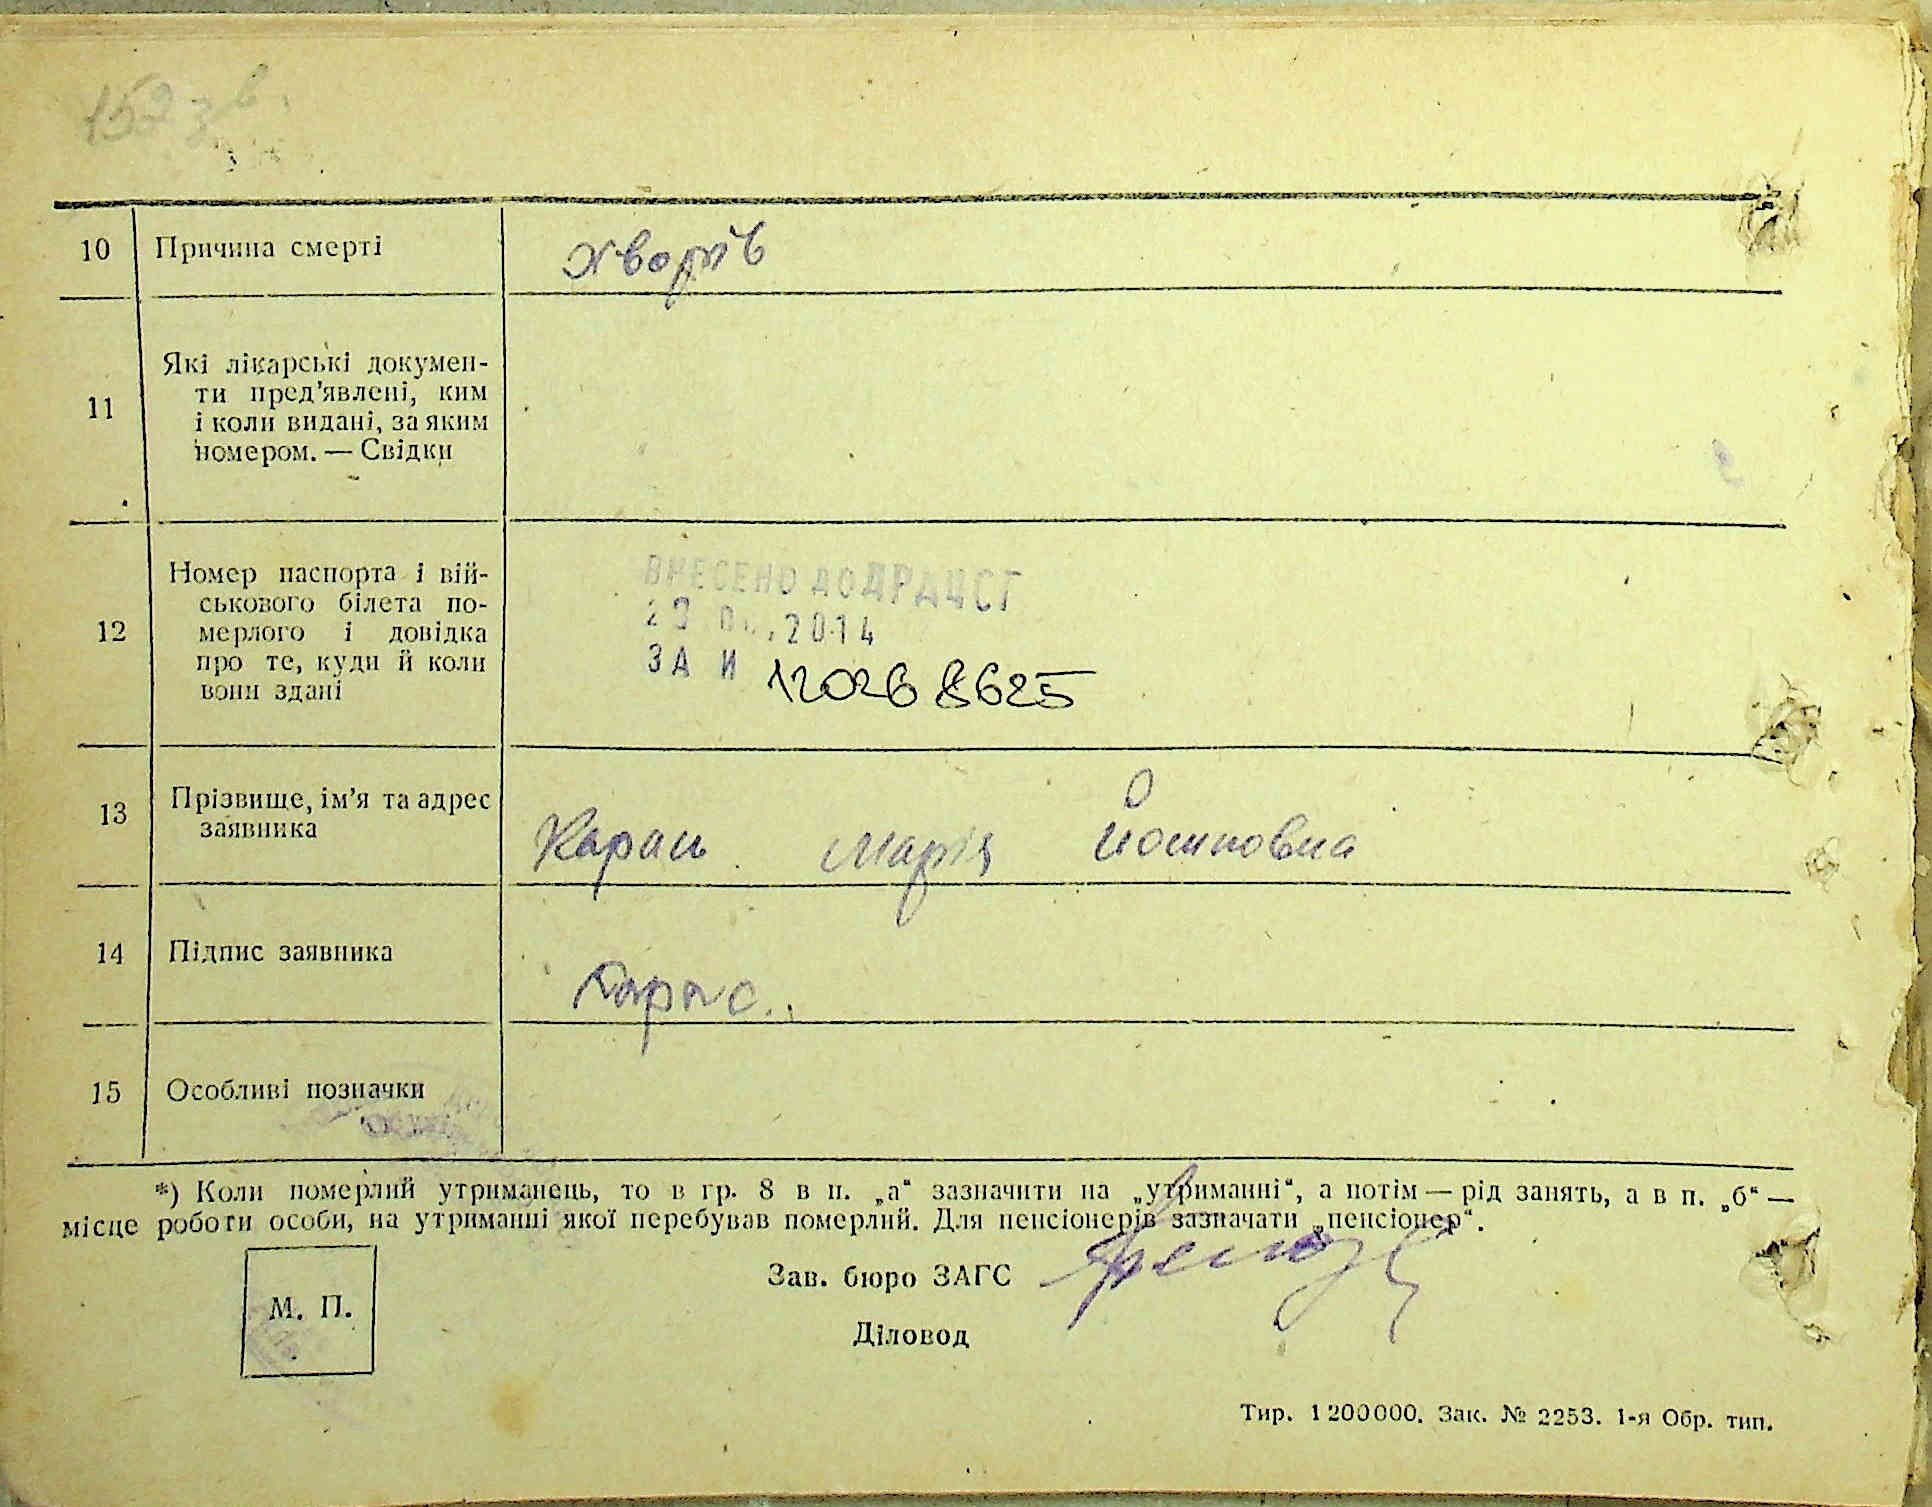 152 зв.
10 Причина смерті хворів
11 Які лікарські докумен-
ти пред’явлені, ким
і коли видані, за яким
номером. — Свідки
12 Номер паспорта і вій-
ськового білета по-
мерлого і довідка
про те, куди й коли
вони здані
ВНЕСЕНО ДО ДРАЦСГ
2014
ЗА И 12026 8625
13 Прізвище, ім’я та адрес
заявника
Марія
14 Підпис заявника
15 Особливі позначки
*) Коли померлий утриманець, то в гр. 8 в п. „а“ зазначити на „утриманні“, а потім — рід занять, а в п. „б“ —
місце роботи особи, на утриманні якої перебував померлий. Для пенсіонерів зазначати „пенсіонер“.
Зав. бюро ЗАГС
М. П.
Діловод
Тир. 1 200000. Зак. № 2253. 1-я Обр. тип.